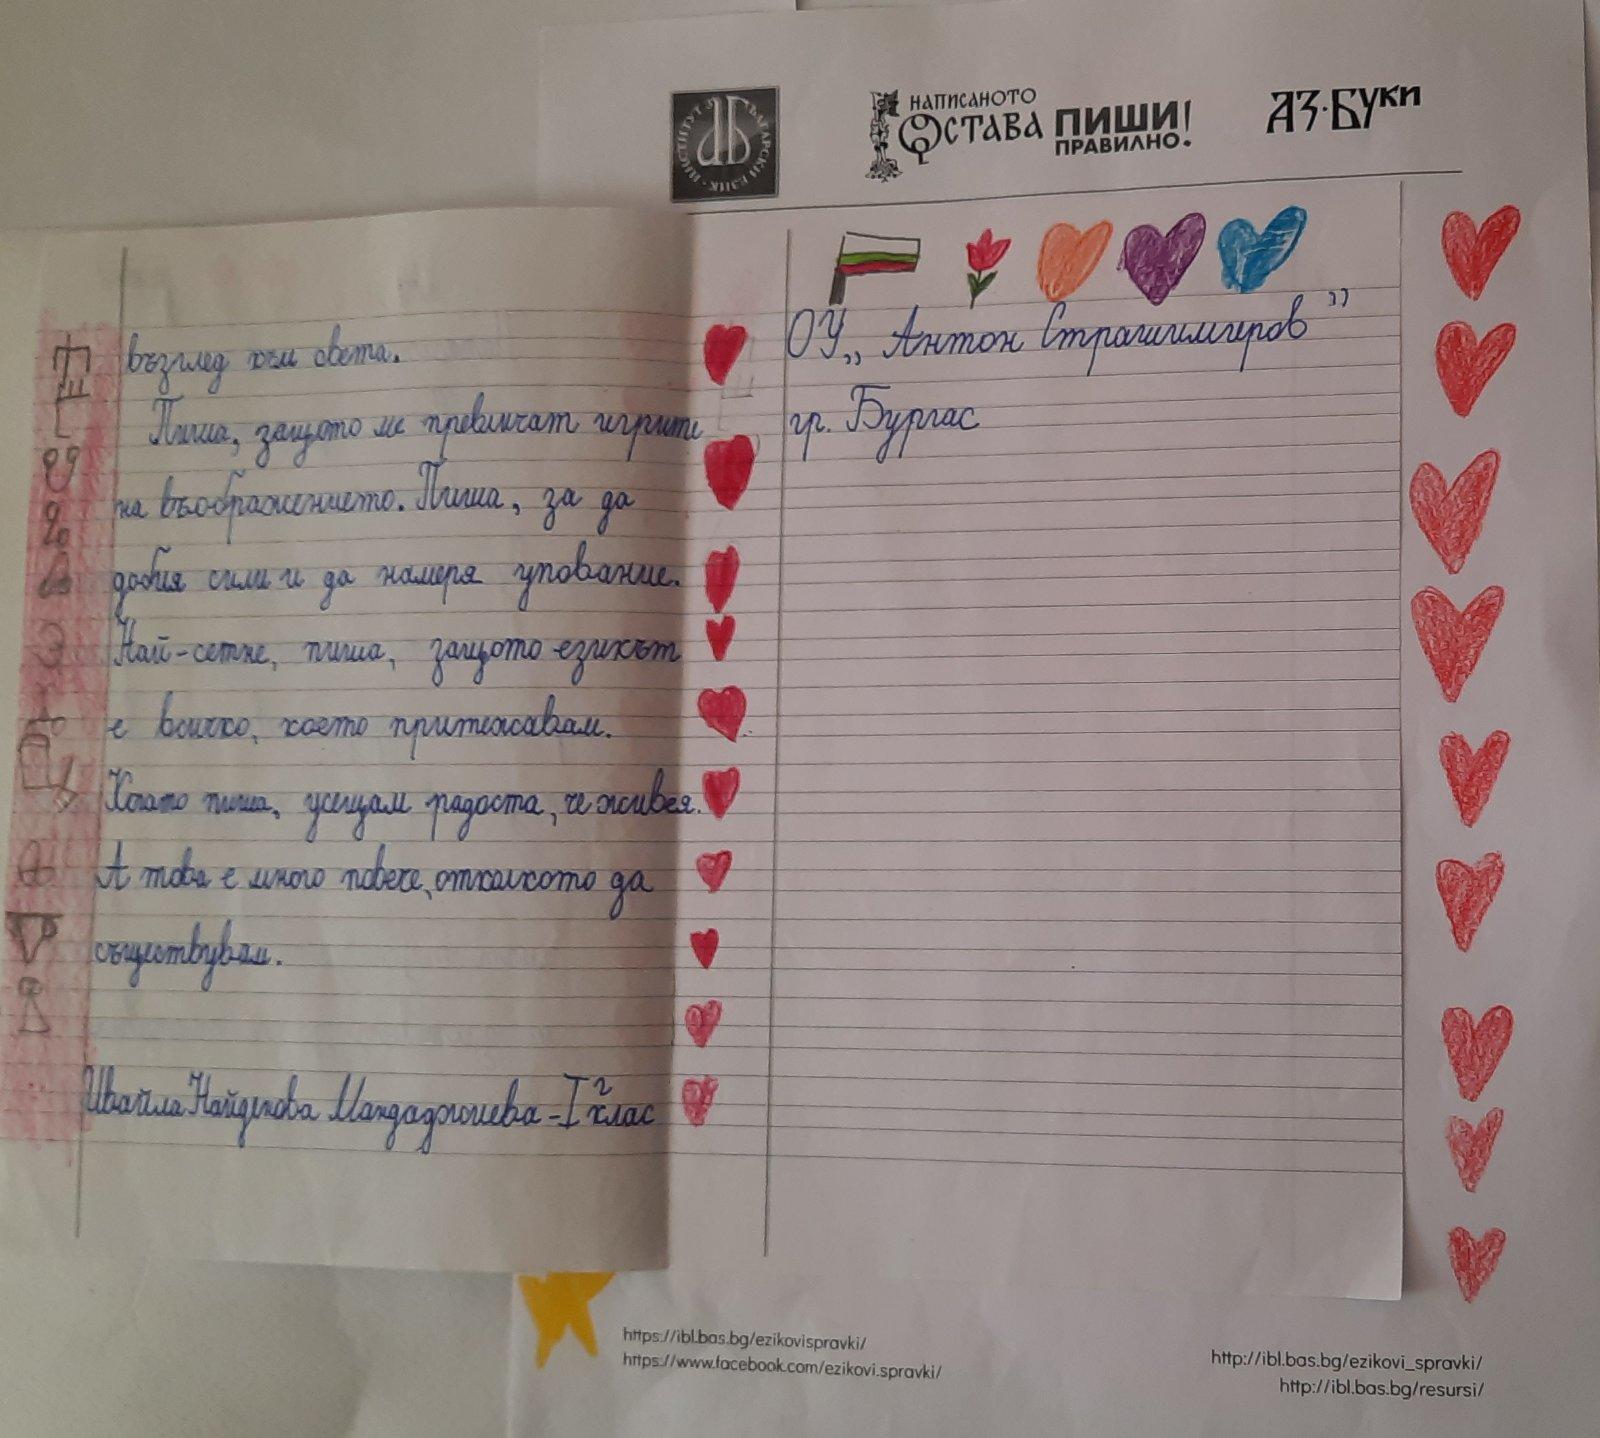 ИНСТИТУТ ЗА БЪЛГАРСКИ ЕЗИК
НАПИСАНОТО
ОСТАВА
ПИШИ
ПРАВИЛНО!
АЗ·БУКИ
възглед към света.
Пиша, защото ме привличат игрите
на въображението. Пиша, за да
добия сили и да намеря упование.
Най-сетне, пиша, защото езикът
е всичко, което притежавам.
Когато пиша, усещам радостта, че живея.
А това е много повече, отколкото да
съществувам.
Ивайла Найденова Манданжиева - I г клас
ОУ „ Антон Страшимиров "
гр. Бургас
https://ibl.bas.bg/ezikovispravki/
https://www.facebook.com/ezikovi.spravki/
http://ibl.bas.bg/ezikovi_spravki/
http://ibl.bas.bg/resursi/